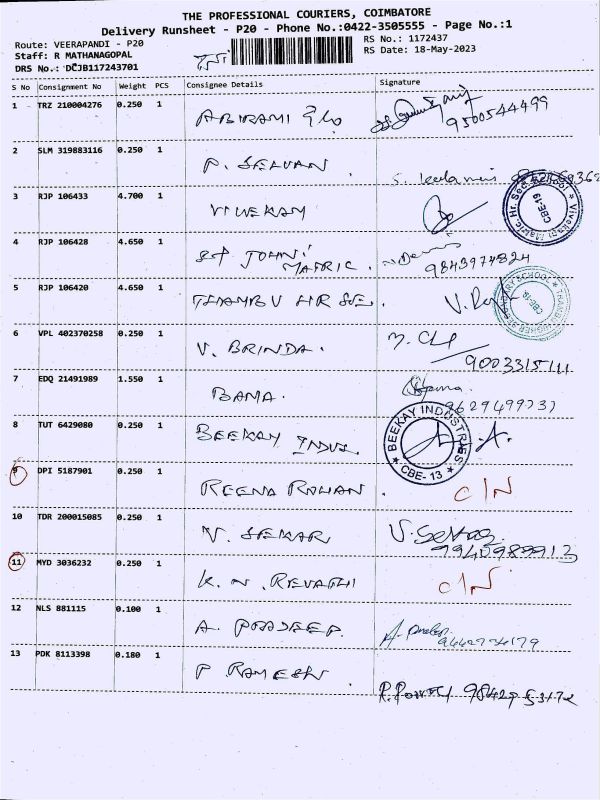 THE PROFESSIONAL COURIERS, COIMBATORE
Delivery Runsheet - P20 - Phone No.:0422-3505555 - Page No.:1
Route: VEERAPANDI - P20
RS No.: 1172437
Staff: R MATHANAGOPAL
RS Date: 18-May-2023
DRS No.: DCJB117243701
S No Consignment No Weight PCS Consignee Details Signature
1 TRZ 210004276 0.250 1 ABIRAMI
9500544499
2 SLM 319883116 0.250 1 P. SELVAN
3 RJP 106433 4.700 1 VIVEKAM
Vivekam Matric Hr. Sec. School CBE-19
4 RJP 106428 4.650 1 St JOHN'
MATRIC.
9843974824
5 RJP 106420 4.650 1 THAMBU HR SE.
THAMBU HIGHER SECONDARY SCHOOL CBE-19
6 VPL 402370258 0.250 1 V. BRINDA.
9003315111
7 EDQ 21491989 1.550 1 BAMA.
8 TUT 6429080 0.250 1 BEEKAY INDUS
BEEKAY INDUSTRIES CBE- 13
9 DPI 5187901 0.250 1 REENA ROHAN. C/N
10 TDR 200015085 0.250 1 V. SEKAR V. Sekar
9940989913
11 MYD 3036232 0.250 1 K. N. REVATHI C/N
12 NLS 881115 0.100 1 A. PRADEEP.
13 PDK 8113398 0.180 1 P RAMESH